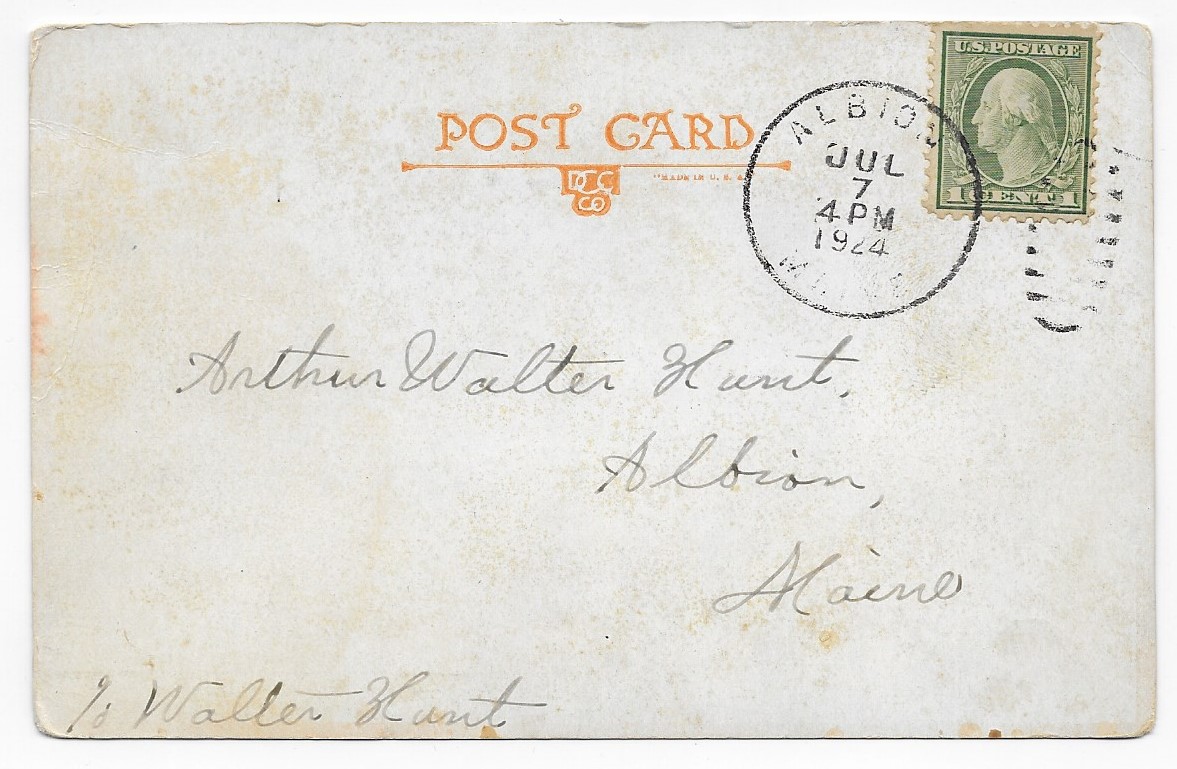 POST CARD
DCC
CO
"MADE IN U. S. A.
U.S. POSTAGE
1 CENT 1
ALBION
JUL
7
4 PM
1924
MAINE
Arthur Walter Hunt,
Albion,
Maine
c/o Walter Hunt